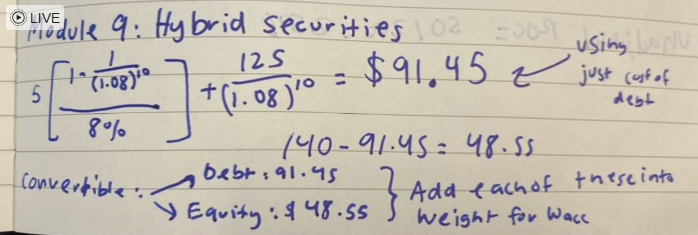 LIVE
Module 9: Hybrid securities
5 [ (1 - 1/(1.08)^10) / 8% ] + 125/(1.08)^10 = $91.45
using just cost of debt
140 - 91.45 = 48.55
Convertible: Debt: 91.45
Equity: $48.55
} Add each of these into weight for Wacc